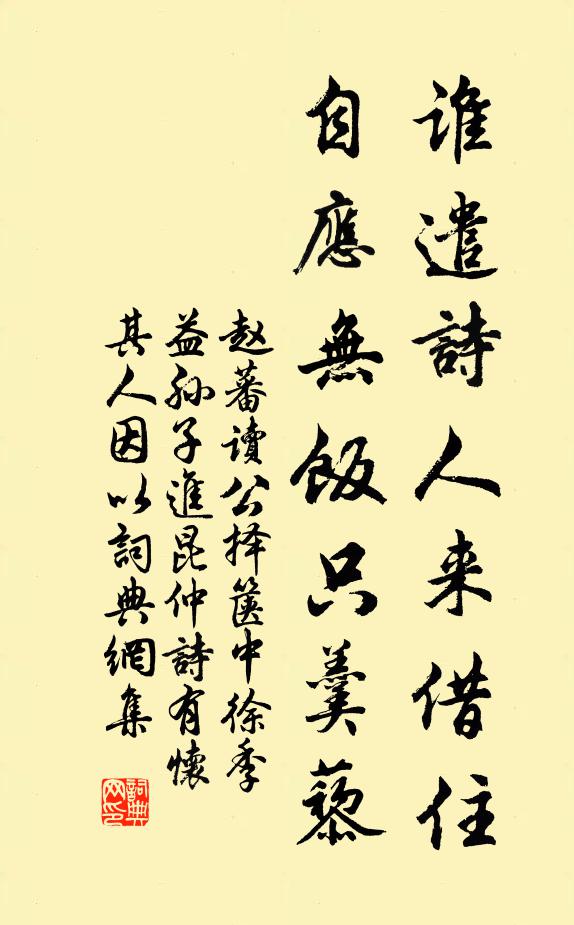 誰遣詩人来借住
自應無飯只羹藜
赵蕃讀公择箧中徐季
益孙子進昆仲詩有懷
其人因以詞典網集
詞典网印